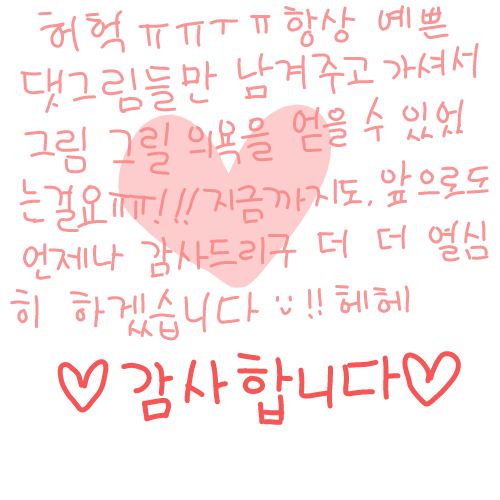 허헉 ㅠㅠㅜㅠ 항상 예쁜
댓그림들만 남겨주고 가셔서
그림 그릴 의욕을 얻을 수 있었
는걸요ㅠㅠ!!! 지금까지도, 앞으로도
언제나 감사드리구 더 더 열심
히 하겠습니다 :)!! 헤헤
♡감사합니다♡